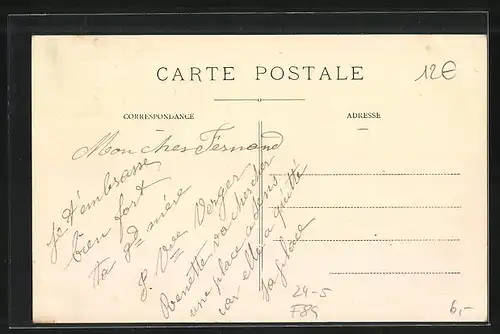 CARTE POSTALE
12€
CORRESPONDANCE
ADRESSE
Mon cher Fernand
Je t'embrasse
bien fort
Ta gd mère
S. Vve Verger
Renette va chercher
une place a Sens
car elle a quitté
sa place
24-5
F84
6,-